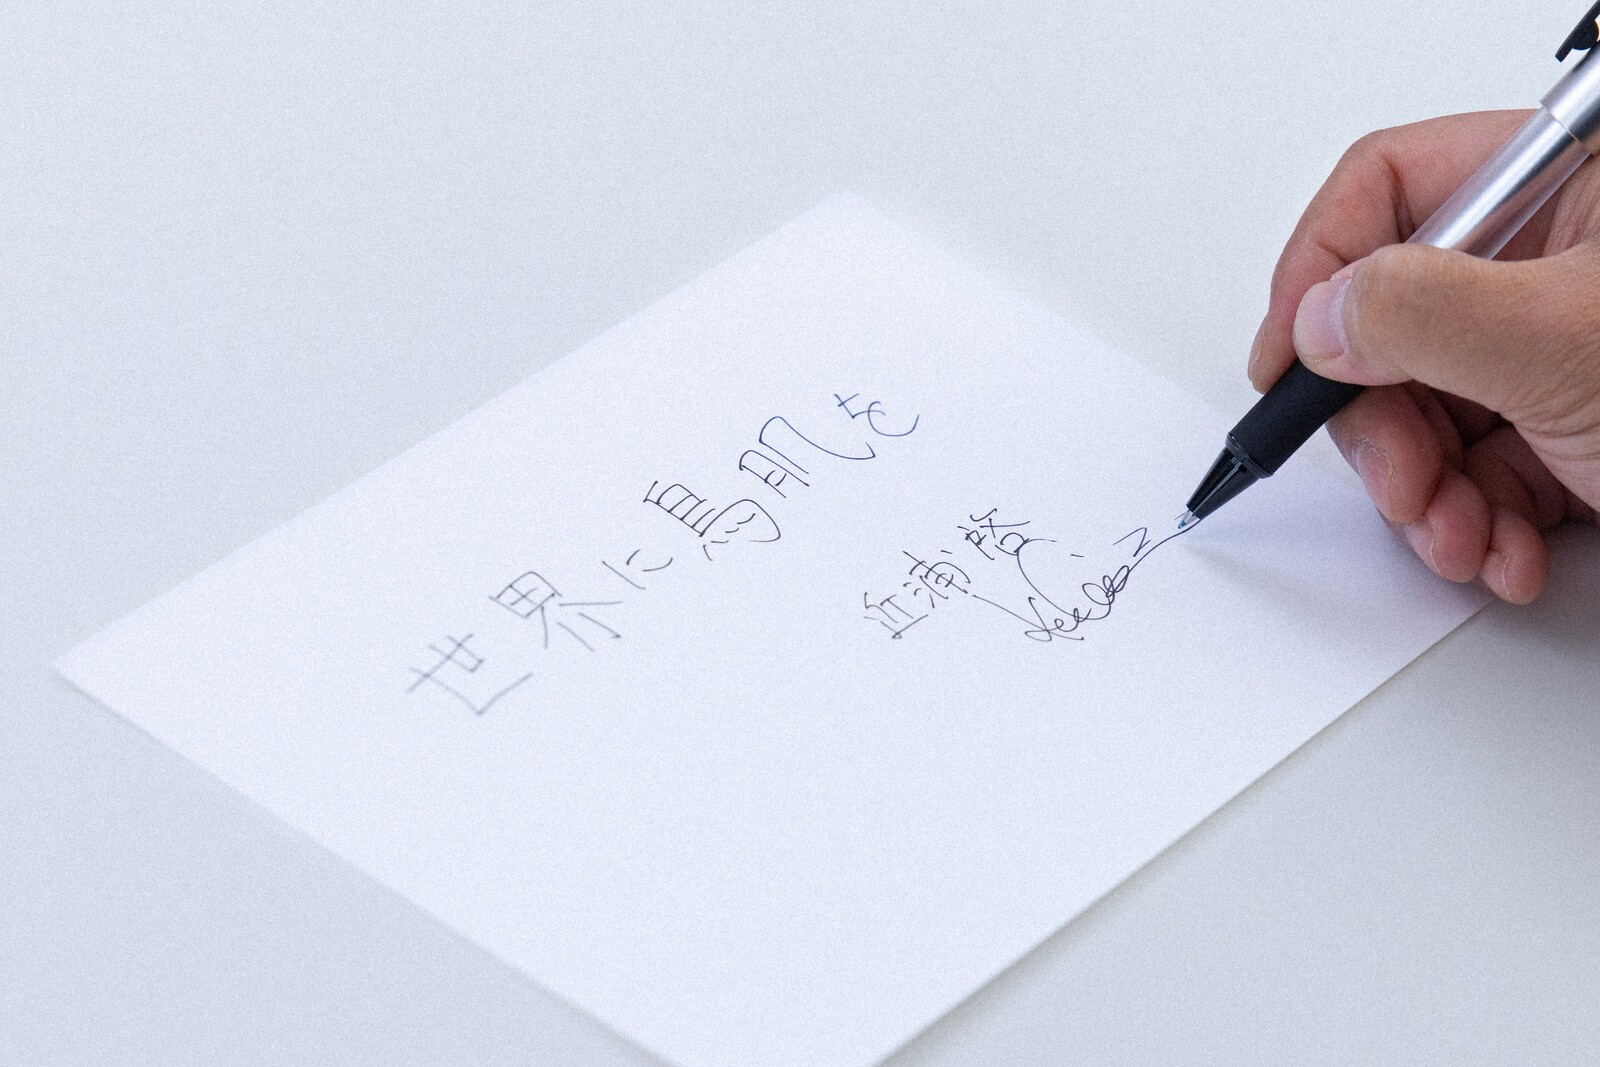 世界に鳥肌を
近浦 啓